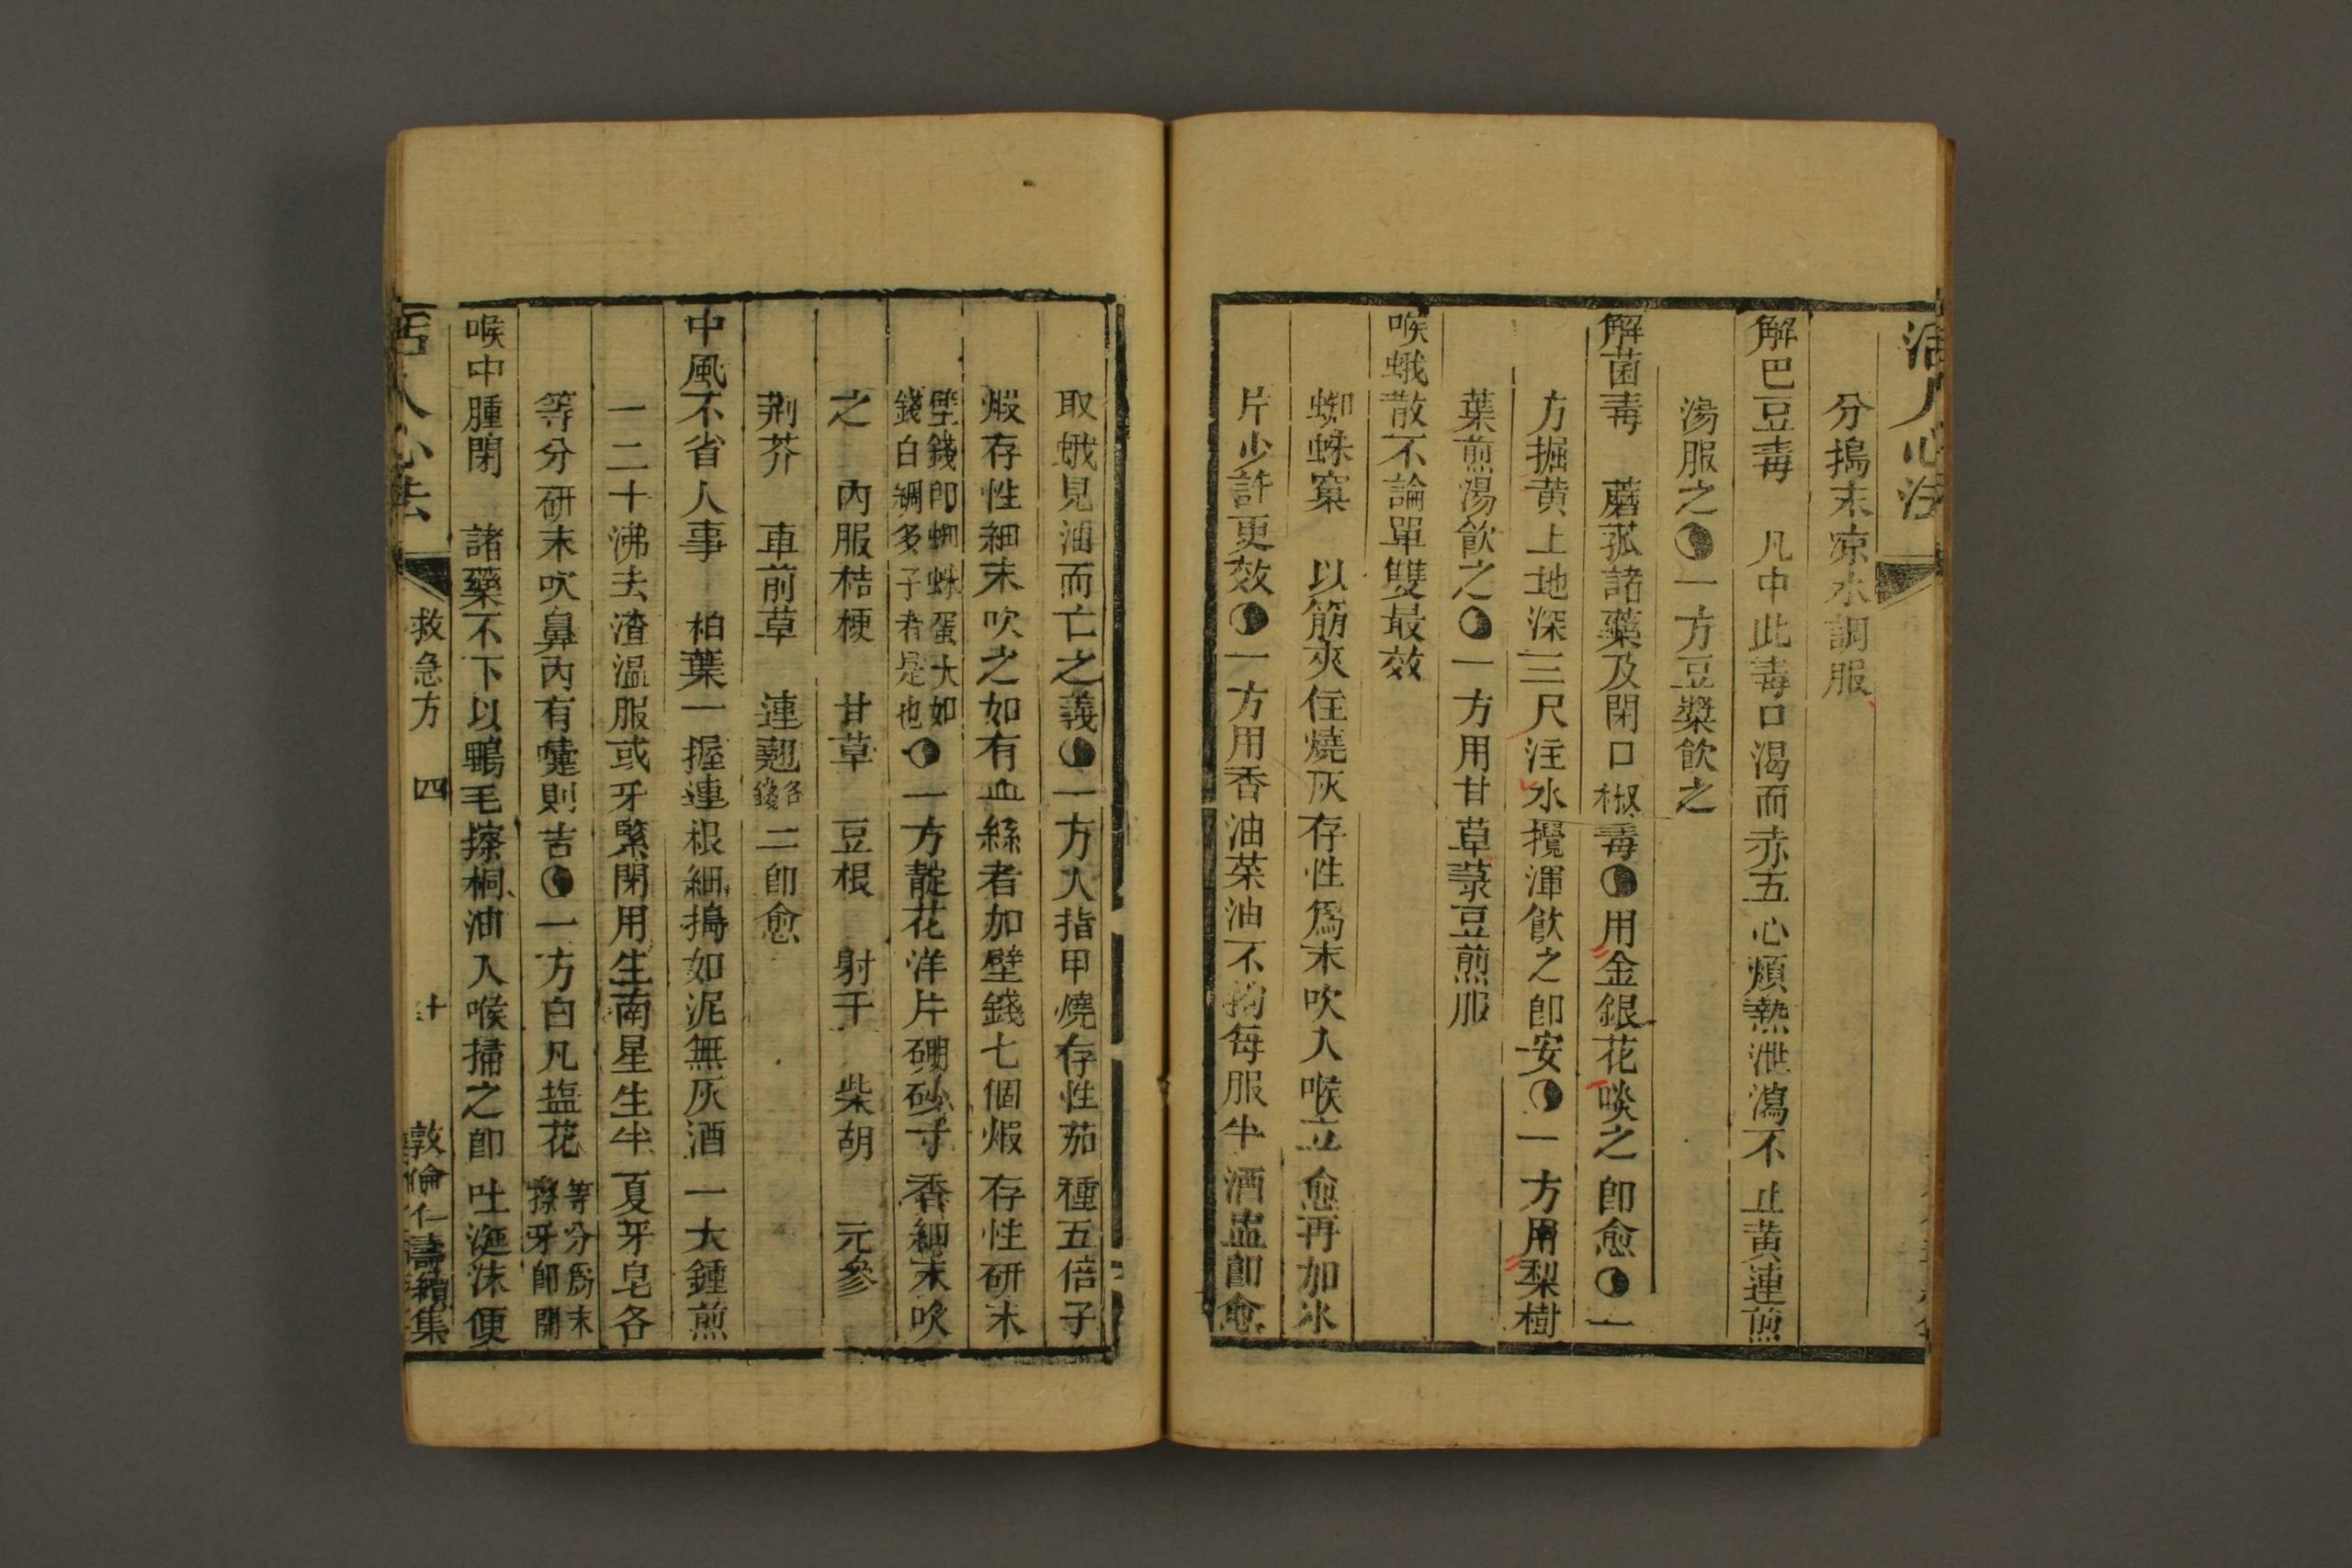 活人心法
分搗末凉水調服
解巴豆毒　凡中此毒口渴而赤五心煩熱泄瀉不止黄連煎
湯服之◐一方豆漿飲之
解菌毒　蘑菰諸藥及閉口椒毒◐用金銀花啖之即愈◐一
方掘黄土地深三尺注水攪渾飲之即安◐一方用梨樹
葉煎湯飲之◐一方用甘草菉豆煎服
喉蛾散不論單雙最效
蜘蛛窠　以筯夾住燒灰存性爲末吹入喉立愈再加冰
片少許更效◐一方用香油菜油不拘每服半酒盅即愈
取蛾見油而亡之義◐一方人指甲燒存性茄種五倍子
煅存性細末吹之如有血絲者加壁錢七個煅存性研末
壁錢即蜘蛛蛋大如
錢白綢多子者是也
◐一方靛花洋片硼砂寸香細末吹
之　內服桔梗　甘草　豆根　射干　柴胡　元參
荆芥　車前草　連翹各錢二即愈
中風不省人事　柏葉一握連根細搗如泥無灰酒一大鍾煎
一二十沸去渣温服或牙緊閉用生南星生半夏牙皂各
等分研末吹鼻內有嚏則吉◐一方白凡塩花
等分爲末
擦牙即開
喉中腫閉　諸藥不下以鴨毛擦桐油入喉掃之即吐涎沫便
活人心法　救急方　四　十　敦倫仁壽續集